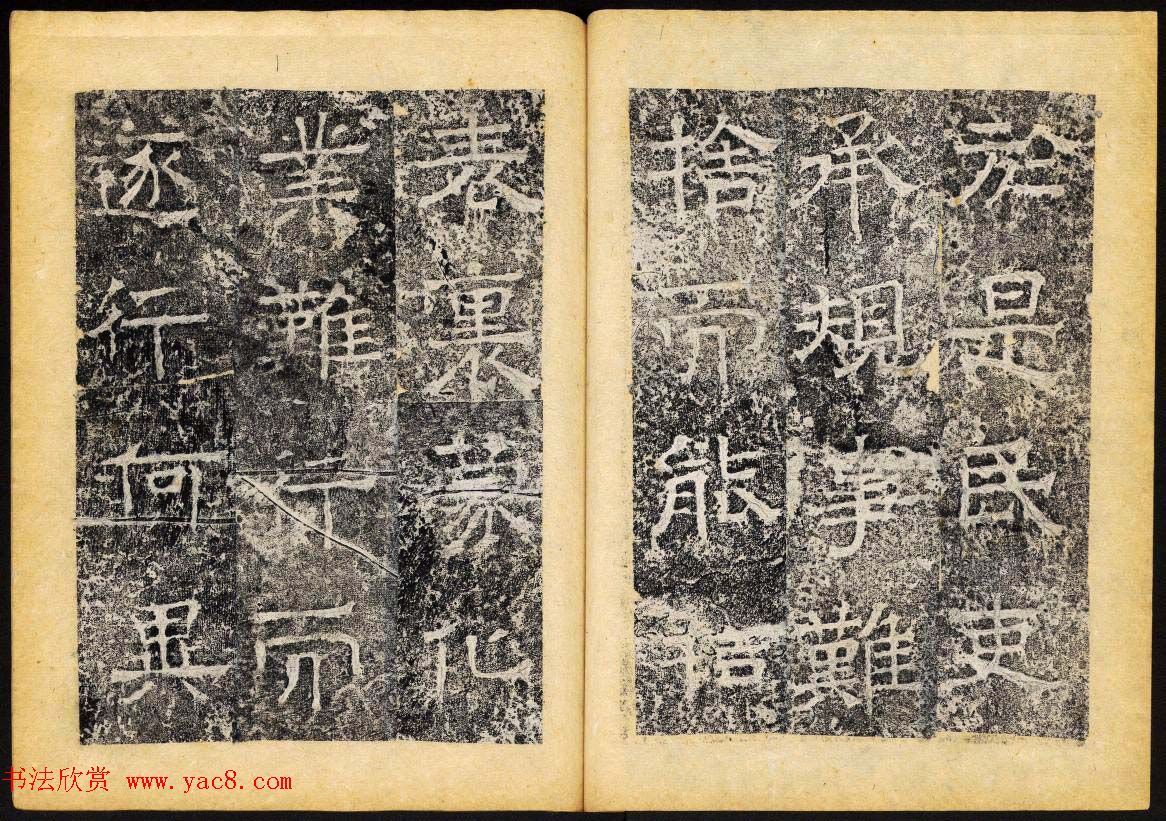 於是民吏
承規事難
捨而能捨
表裏慕化
業難行而
遂行何異
书法欣赏 www.yac8.com